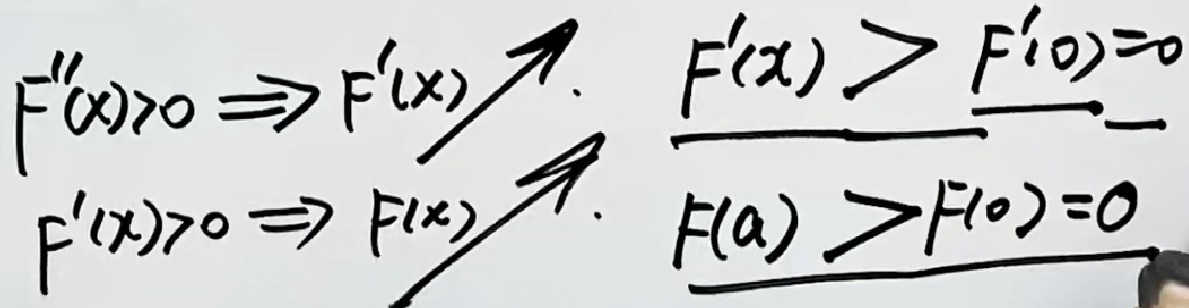 F''(x)>0 ⇒ F'(x) ↗. F'(x) > F'(0)=0
F'(x)>0 ⇒ F(x) ↗. F(a) > F(0)=0